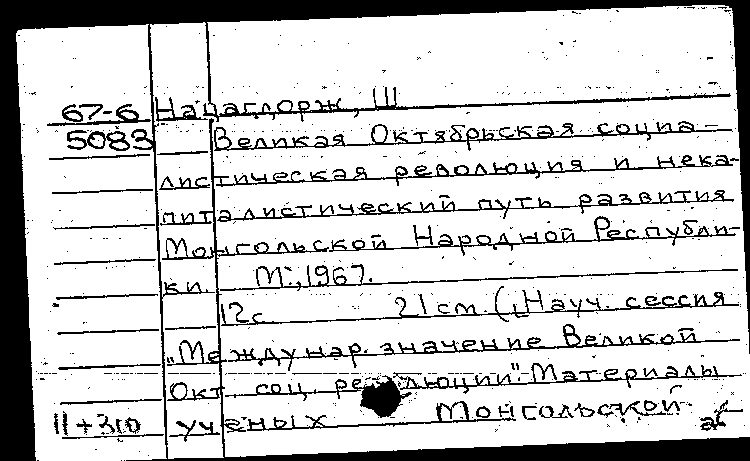 67-6 Нацагдорж, Ш
5083 Великая Октябрьская социа-
листическая революция и нека-
питалистический путь развития
Монгольской Народной Республи-
ки. М., 1967.
12с 21 см. („Науч. сессия
„Междунар. значение Великой
Окт. соц. революции". Материалы
11+310 ученых Монгольской